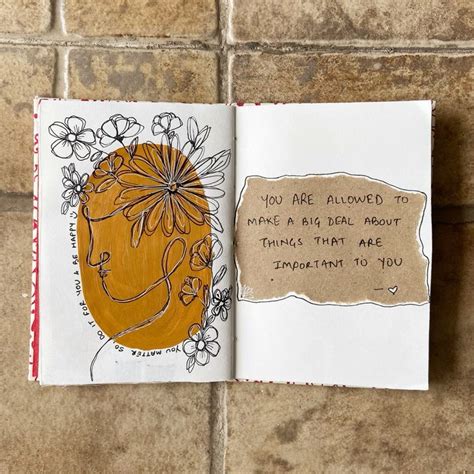 YOU MATTER SO DO IT FOR YOU & BE HAPPY :)
YOU ARE ALLOWED TO
MAKE A BIG DEAL ABOUT
THINGS THAT ARE
IMPORTANT TO YOU
— ♡